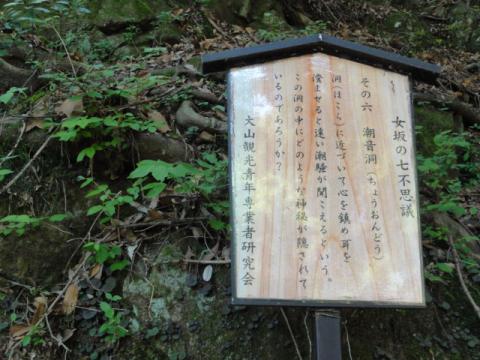 女坂の七不思議
その六 潮音洞(ちょうおんどう)
洞(ほこら)に近づいて心を鎮め耳を
澄ませると遠い潮騒が聞こえるという。
この洞の中にどのような神秘が隠されて
いるのであろうか?
大山観光青年専業者研究会